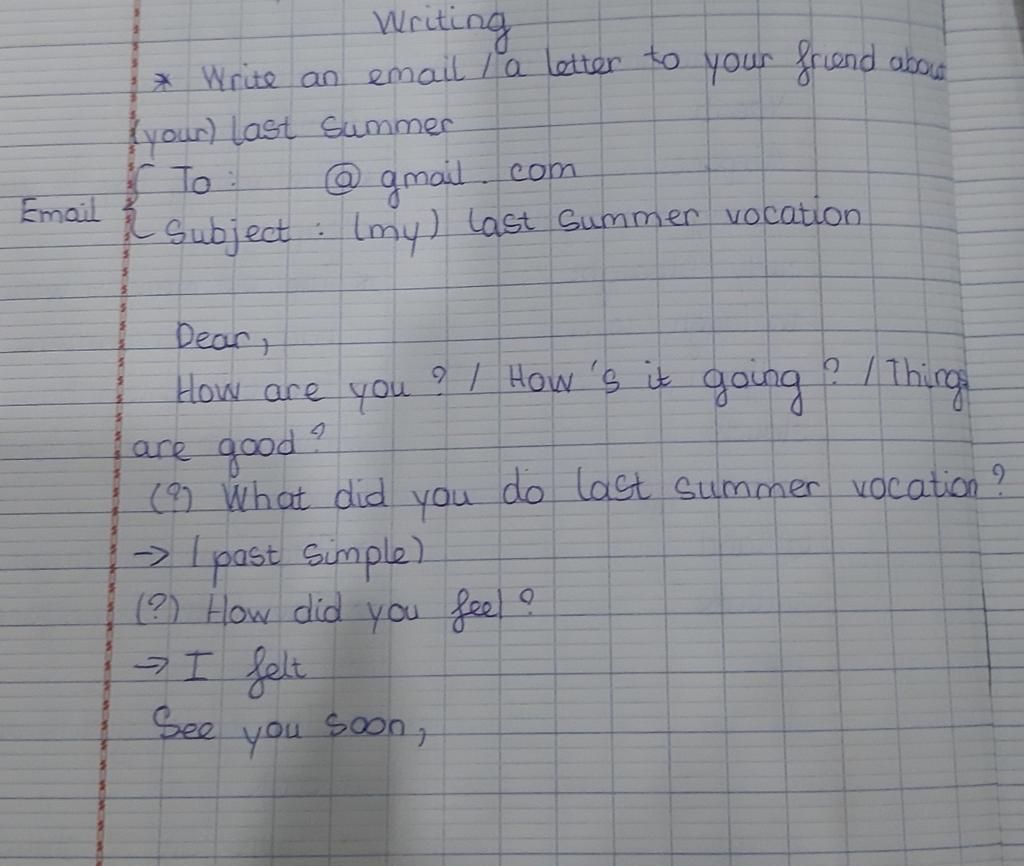 Writing
* Write an email / a letter to your friend about
(your) last summer
To: @ gmail. com
Email
Subject: (my) last summer vocation
Dear,
How are you? / How's it going? / Things
are good?
(?) What did you do last summer vocation?
→ (past simple)
(?) How did you feel?
→ I felt
See you soon,